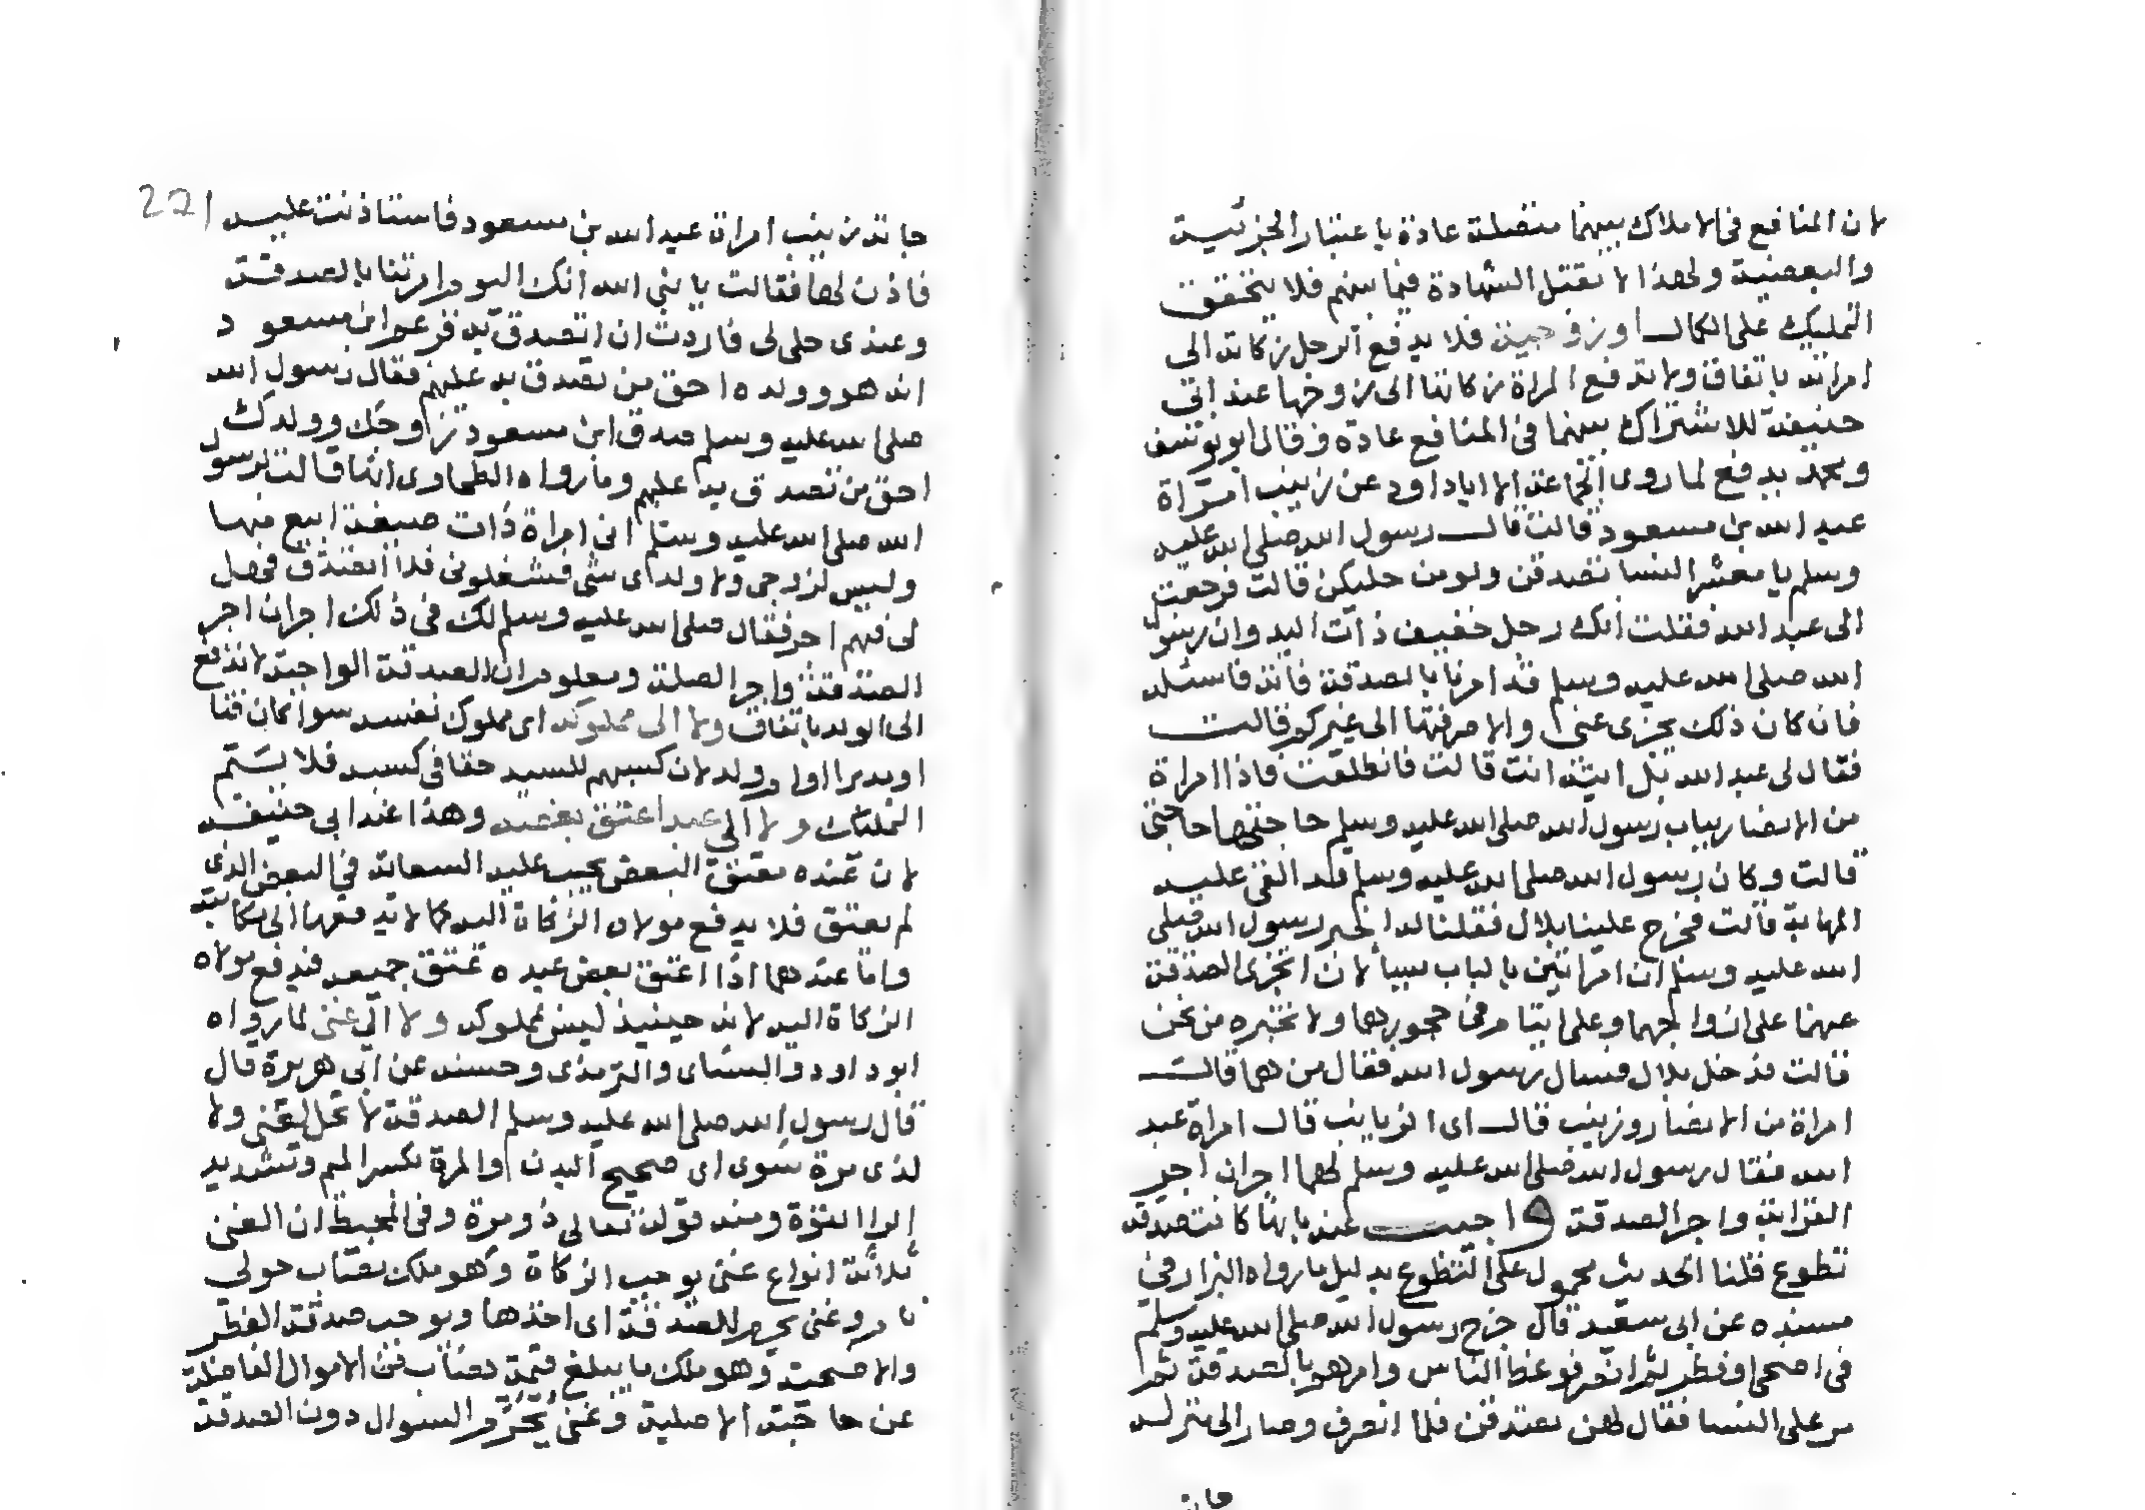 لان المنافع فى الاملاك بينهما متصلة عادة باعتبار الجزئية
والبعضية ولهذا لا تقبل الشهادة فيما بينهم فلا يتحقق
التمليك على الكمال اوزوجته فلا يدفع الرجل زكاته الى
امراته باتفاق ولا تدفع المراة زكاتها الى زوجها عند ابى
حنيفة للاشتراك بينهما فى المنافع عادة وقال ابو يوسف
ومحمد يدفع لما روى الجماعة الا ابا داود عن زينب امراة
عبد الله بن مسعود قالت قال رسول الله صلى الله عليه
وسلم يا معشر النسا تصدقن ولو من حليكن قالت فرجعت
الى عبد الله فقلت انك رجل خفيف ذات اليد وان رسول
الله صلى الله عليه وسلم قد امرنا بالصدقة فاته فاسئله
فان كان ذلك يجزى عنى والا صرفتها الى غيركم قالت
فقال لى عبد الله بل ايته انت قالت فانطلقت فاذا امراة
من الانصار بباب رسول الله صلى الله عليه وسلم حاجتها حاجتى
قالت وكان رسول الله صلى الله عليه وسلم قد القى عليه
المهابة قالت فخرج علينا بلال فقلنا له اخبر رسول الله صلى
الله عليه وسلم ان امراتين بالباب يسالان اتجزى الصدقة
عنهما على ازواجهما وعلى ايتام فى حجورهما ولا تخبره من نحن
قالت فدخل بلال فسال رسول الله فقال من هما قال
امراة من الانصار وزينب قال اى الزيانب قال امراة عبد
الله فقال رسول الله صلى الله عليه وسلم لهما اجران اجر
القرابة واجر الصدقة واجيب عنه بانها كانت صدقة
تطوع قلنا الحديث محمول على التطوع بدليل ما رواه البزار فى
مسنده عن ابى سعيد قال خرج رسول الله صلى الله عليه وسلم
فى اضحى او فطر ثم انصرف فوعظ الناس وامرهم بالصدقة ثم
مر على النسا فقال لهن تصدقن فلما انصرف وصار الى منزله
جات
221
جاته زينب امراة عبد الله بن مسعود فاستاذنت عليه
فاذن لها فقالت يا نبى الله انك اليوم امرتنا بالصدقة
وعندى حلى لى فاردت ان اتصدق به فزعم ابن مسعود
انه هو وولده احق من تصدق به عليهم فقال رسول الله
صلى الله عليه وسلم صدق ابن مسعود زوجك وولدك
احق من تصدق به عليهم وما رواه الطحاوى انها قالت لرسول
الله صلى الله عليه وسلم انى امراة ذات صنعة ابيع منها
وليس لزوجى ولا ولداى شى فشغلونى فلا اتصدق فهل
لى فيهم اجر فقال صلى الله عليه وسلم لك فى ذلك اجران اجر
الصدقة واجر الصلة ومعلوم ان الصدقة الواجبة لا تدفع
الى الولد باتفاق ولا الى مملوكه اى مملوك نفسه سوا كان قنا
او مدبرا او ام ولد لان كسبهم للسيد حقا فى كسبه فلا يتم
التمليك ولا الى عبد اعتق بعضه وهذا عند ابى حنيفة
لان عنده معتق البعض يجب عليه السعاية فى البعض الذى
لم يعتق فلا يدفع مولاه الزكاة اليه كما لا يدفعها الى مكاتبه
واما عندهما اذا اعتق بعض عبده عتق جميعه فيدفع مولاه
الزكاة اليه لانه حينيذ ليس بمملوكه ولا الى غنى لما رواه
ابو داود والنسائى والترمذى وحسنه عن ابى هريرة قال
قال رسول الله صلى الله عليه وسلم الصدقة لا تحل لغنى ولا
لذى مرة سوى اى صحيح البدن والمرة بكسر الميم وتشديد
الرا القوة ومنه قوله تعالى ذو مرة وفى المحيط ان الغنى
ثلاثة انواع غنى يوجب الزكاة وهو ملك نصاب حولى
نام وغنى يحرم للصدقة اى اخذها ويوجب صدقة الفطر
والاضحية وهو ملك ما يبلغ قيمة نصاب من الاموال الفاضلة
عن حاجته الاصلية وغنى يحرم السوال دون الصدقة